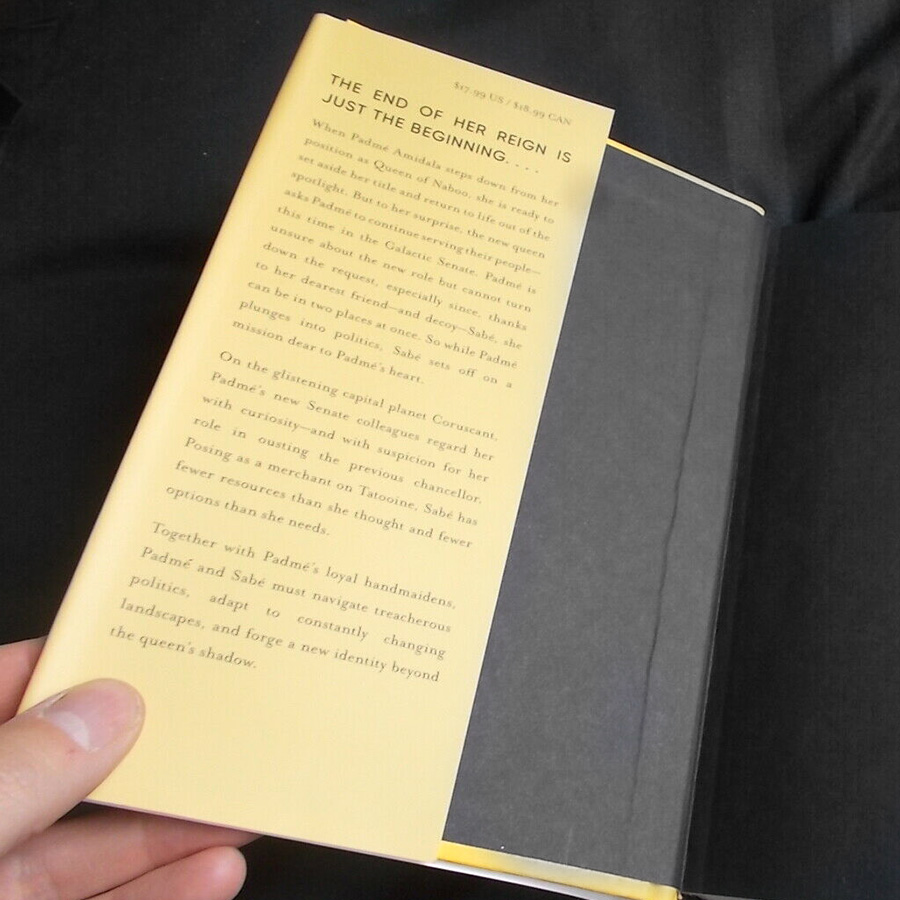 $17.99 US / $18.99 CAN
THE END OF HER REIGN IS
JUST THE BEGINNING. . . .
When Padmé Amidala steps down from her
position as Queen of Naboo, she is ready to
set aside her title and return to life out of the
spotlight. But to her surprise, the new queen
asks Padmé to continue serving their people—
this time in the Galactic Senate. Padmé is
unsure about the new role but cannot turn
down the request, especially since, thanks
to her dearest friend—and decoy—Sabé, she
can be in two places at once. So while Padmé
plunges into politics, Sabé sets off on a
mission dear to Padmé's heart.
On the glistening capital planet Coruscant,
Padmé's new Senate colleagues regard her
with curiosity—and with suspicion for her
role in ousting the previous chancellor.
Posing as a merchant on Tatooine, Sabé has
fewer resources than she thought and fewer
options than she needs.
Together with Padmé's loyal handmaidens,
Padmé and Sabé must navigate treacherous
politics, adapt to constantly changing
landscapes, and forge a new identity beyond
the queen's shadow.